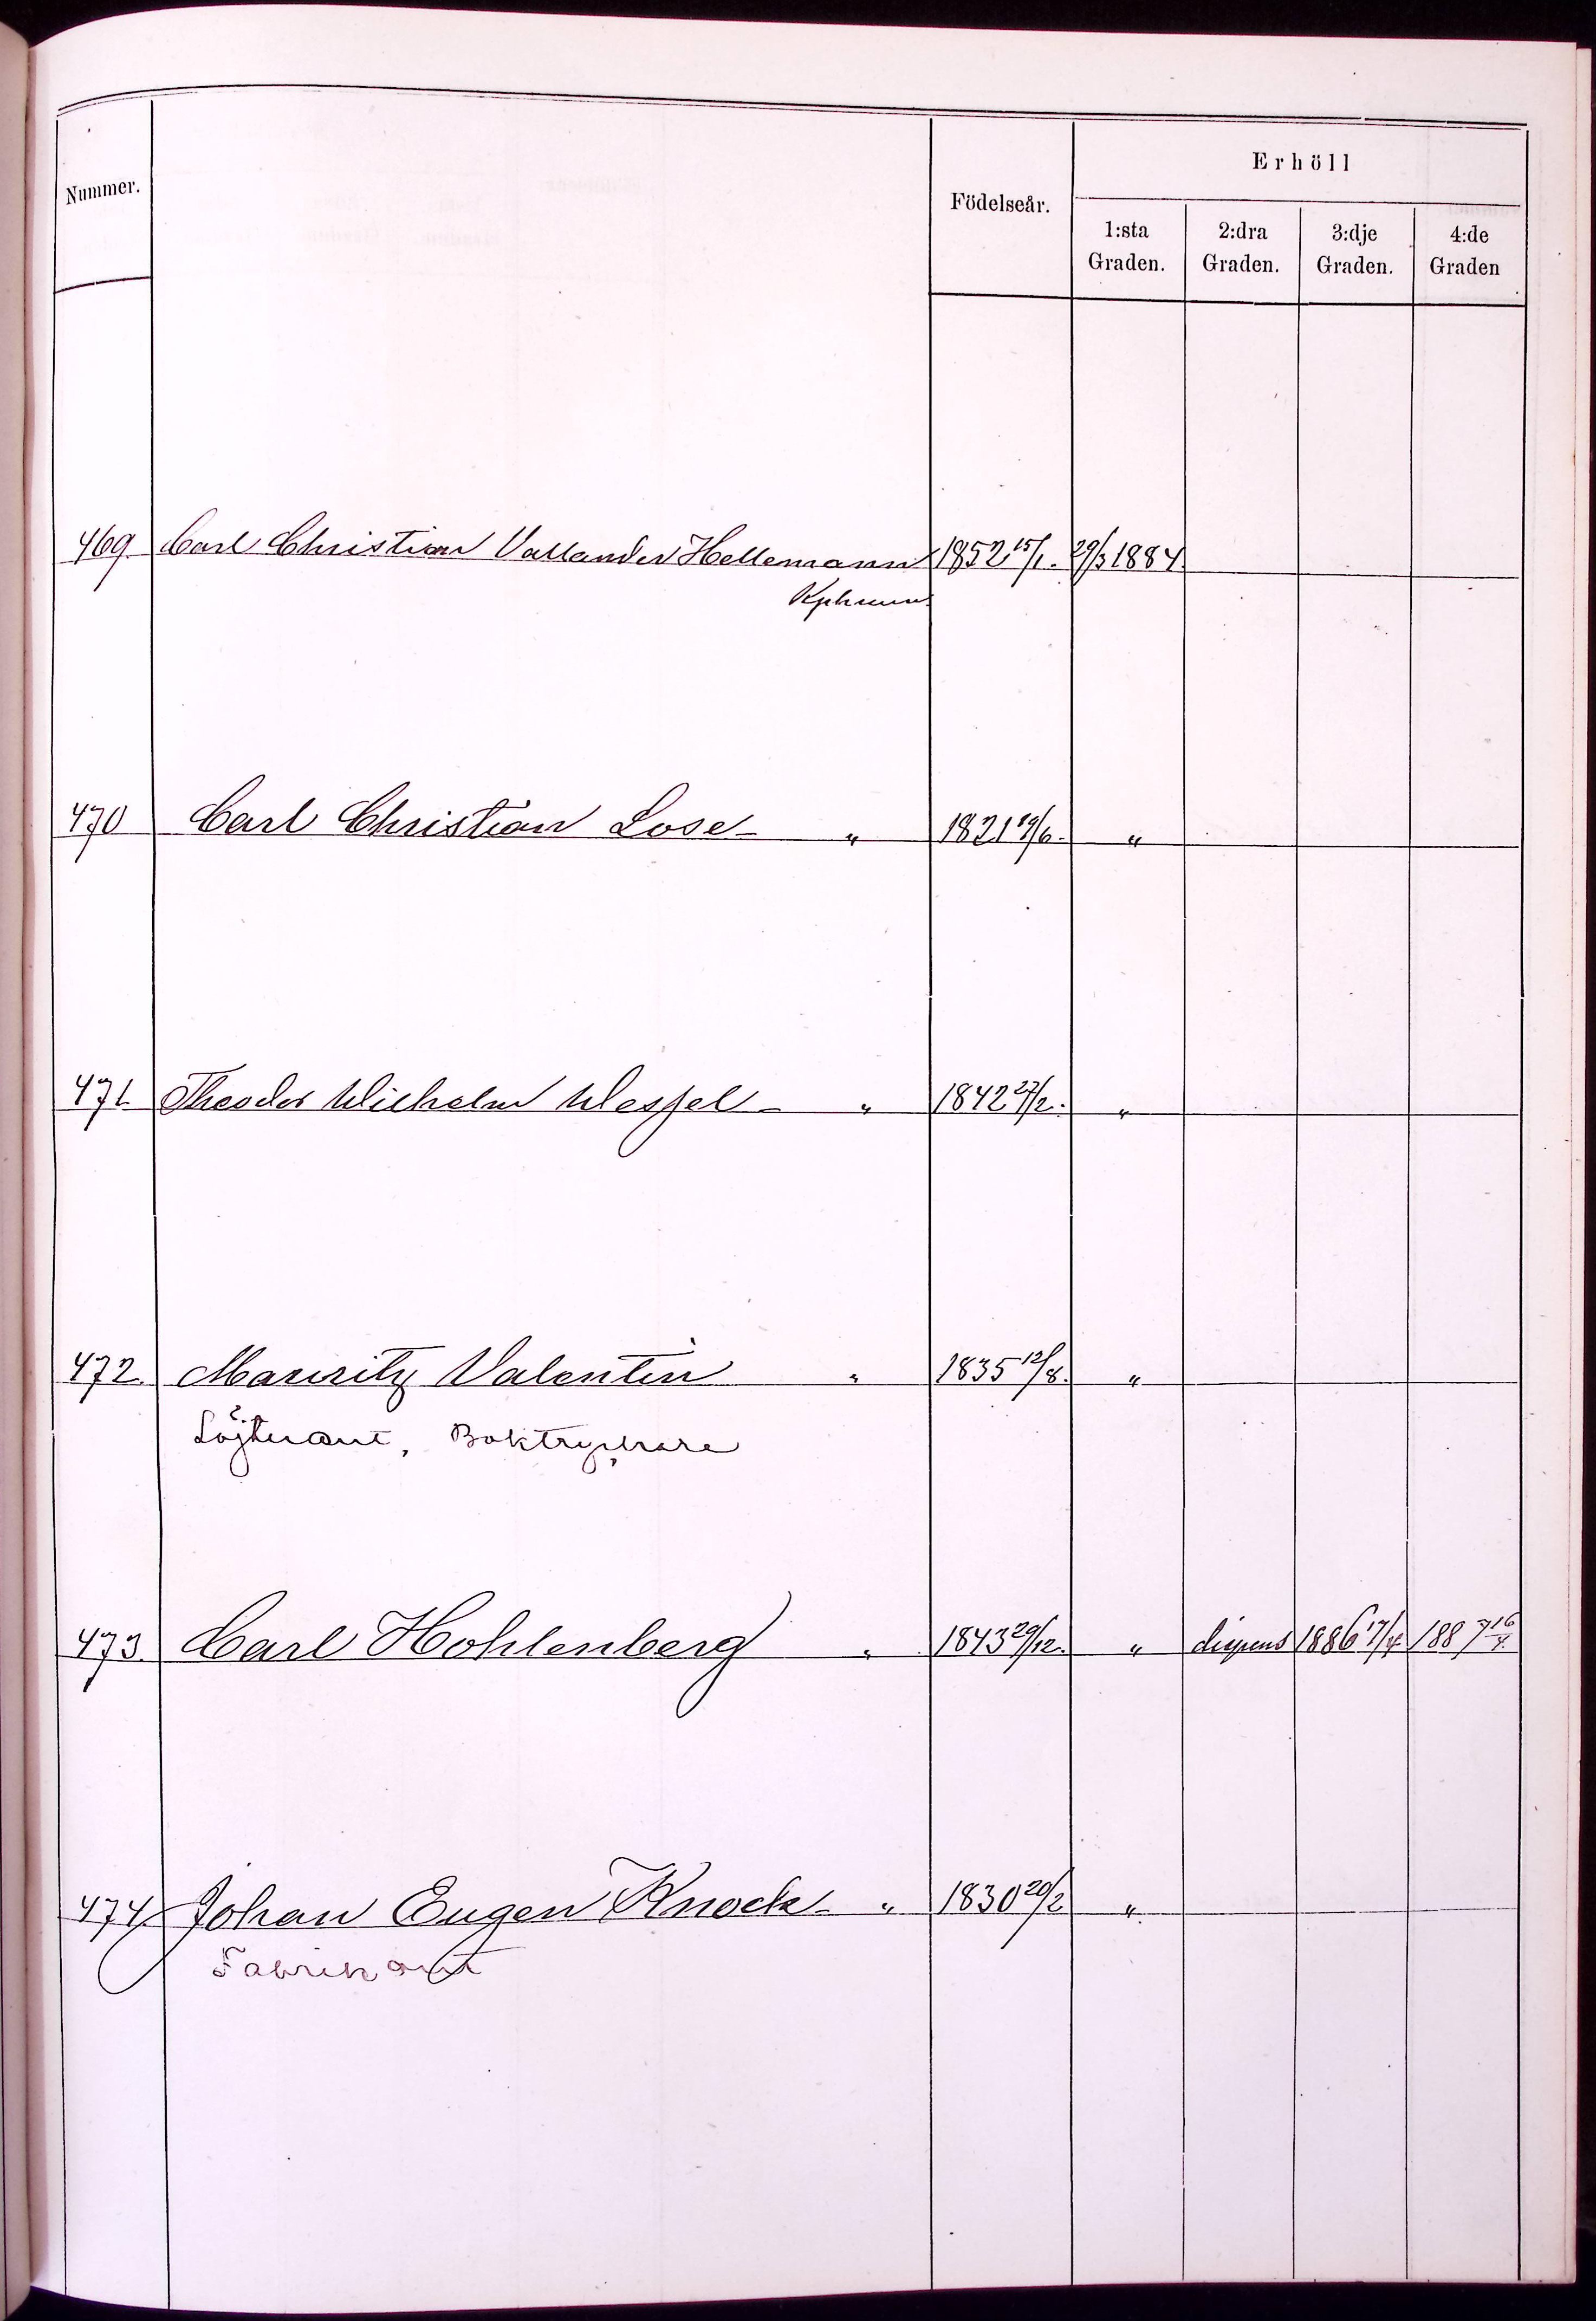 Nummer.
Födelseår.
Erhöll
1:sta Graden.
2:dra Graden.
3:dje Graden.
4:de Graden
469. Carl Christian Vallander Hellemann 1852 15/1. 29/3 1884.
Kphmn
470 Carl Christian Lose - " 1821 19/6. "
471. Theodor Wilhelm Wessel - " 1842 27/2. "
472. Mauritz Valentin " 1835 12/8. "
Löjtnant, Boktryckare
473. Carl Hohlenberg " 1843 29/12. " dispens 1886 17/4 1887 16/4.
474. Johan Eugen Knock - " 1830 20/2 "
Fabrikant